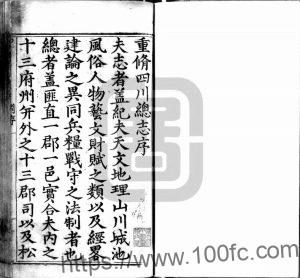 重脩四川總志序
夫志者蓋紀夫天文地理山川城池
風俗人物藝文財賦之類以及經畧
建論之異同兵糧戰守之法制者也
總者蓋匪直一郡一邑實合夫內之
十三府州并外之十三郡司以及松
https://www.100fc.com